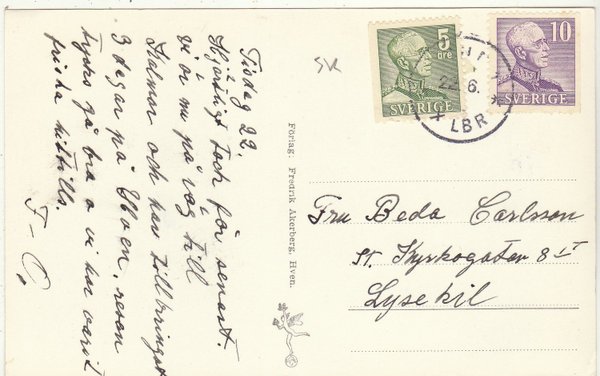 Tisdag 22.
Hjärtligt tack för senast.
vi är nu på väg till
Kalmar och har tillbringat
3 dagar på Hven, resan
tycks gå bra o vi har varit
friska hittills.
F – O,
SK
Förlag: Fredrik Åkerberg, Hven.
5
öre
SVERIGE
10
SVERIGE
22. 6.
LBR
Fru Beda Carlsson
St. Kyrkogatan 8 II
Lysekil